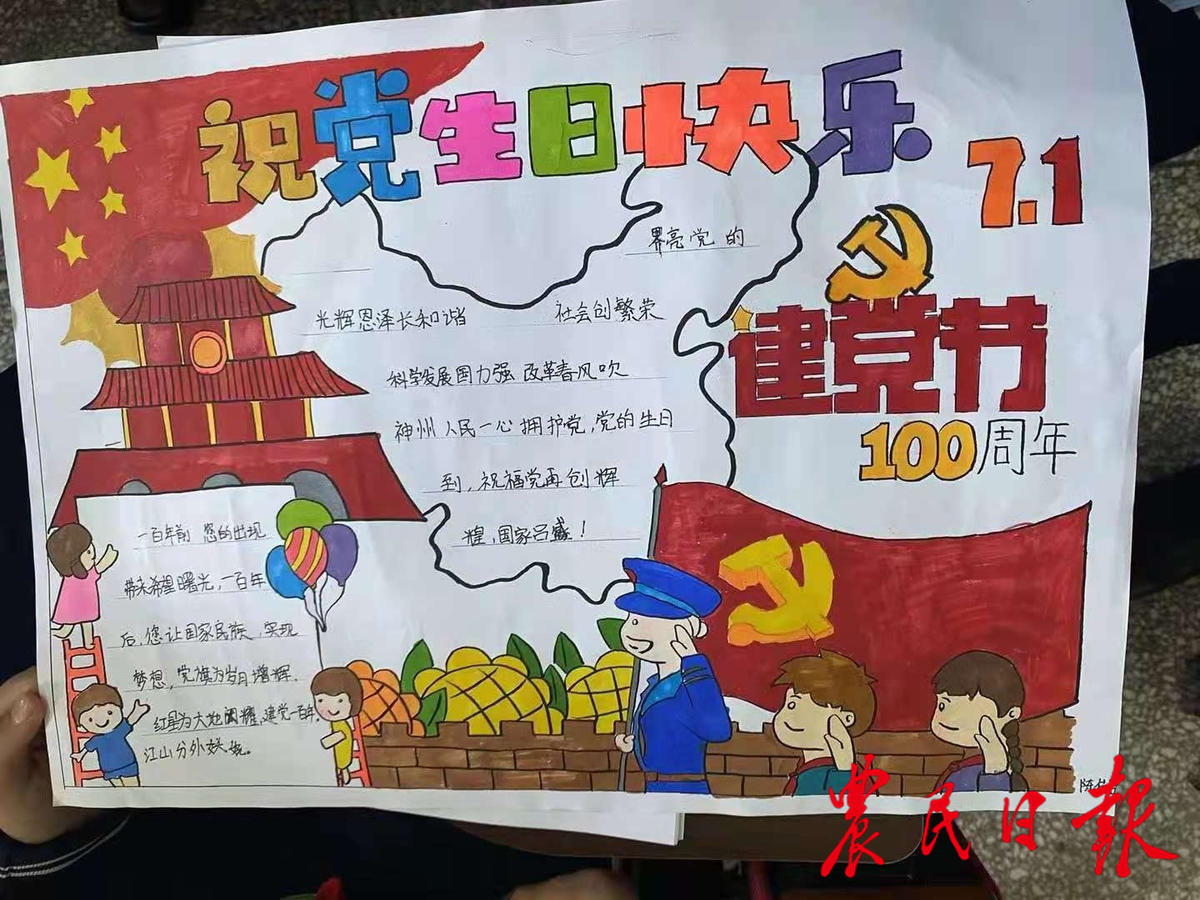 祝党生日快乐
7.1
界亮党的
光辉恩泽长和谐 社会创繁荣
科学发展国力强 改革春风吹
神州人民一心拥护党,党的生日
到,祝福党再创辉
煌,国家吕盛!
建党节
100周年
一百年前 您的出现
带来希望曙光,一百年
后,您让国家民族,实现
梦想,党旗为岁月增辉.
红星为大地闪耀,建党一百年,
江山分外妖娆。
陈
农民日报